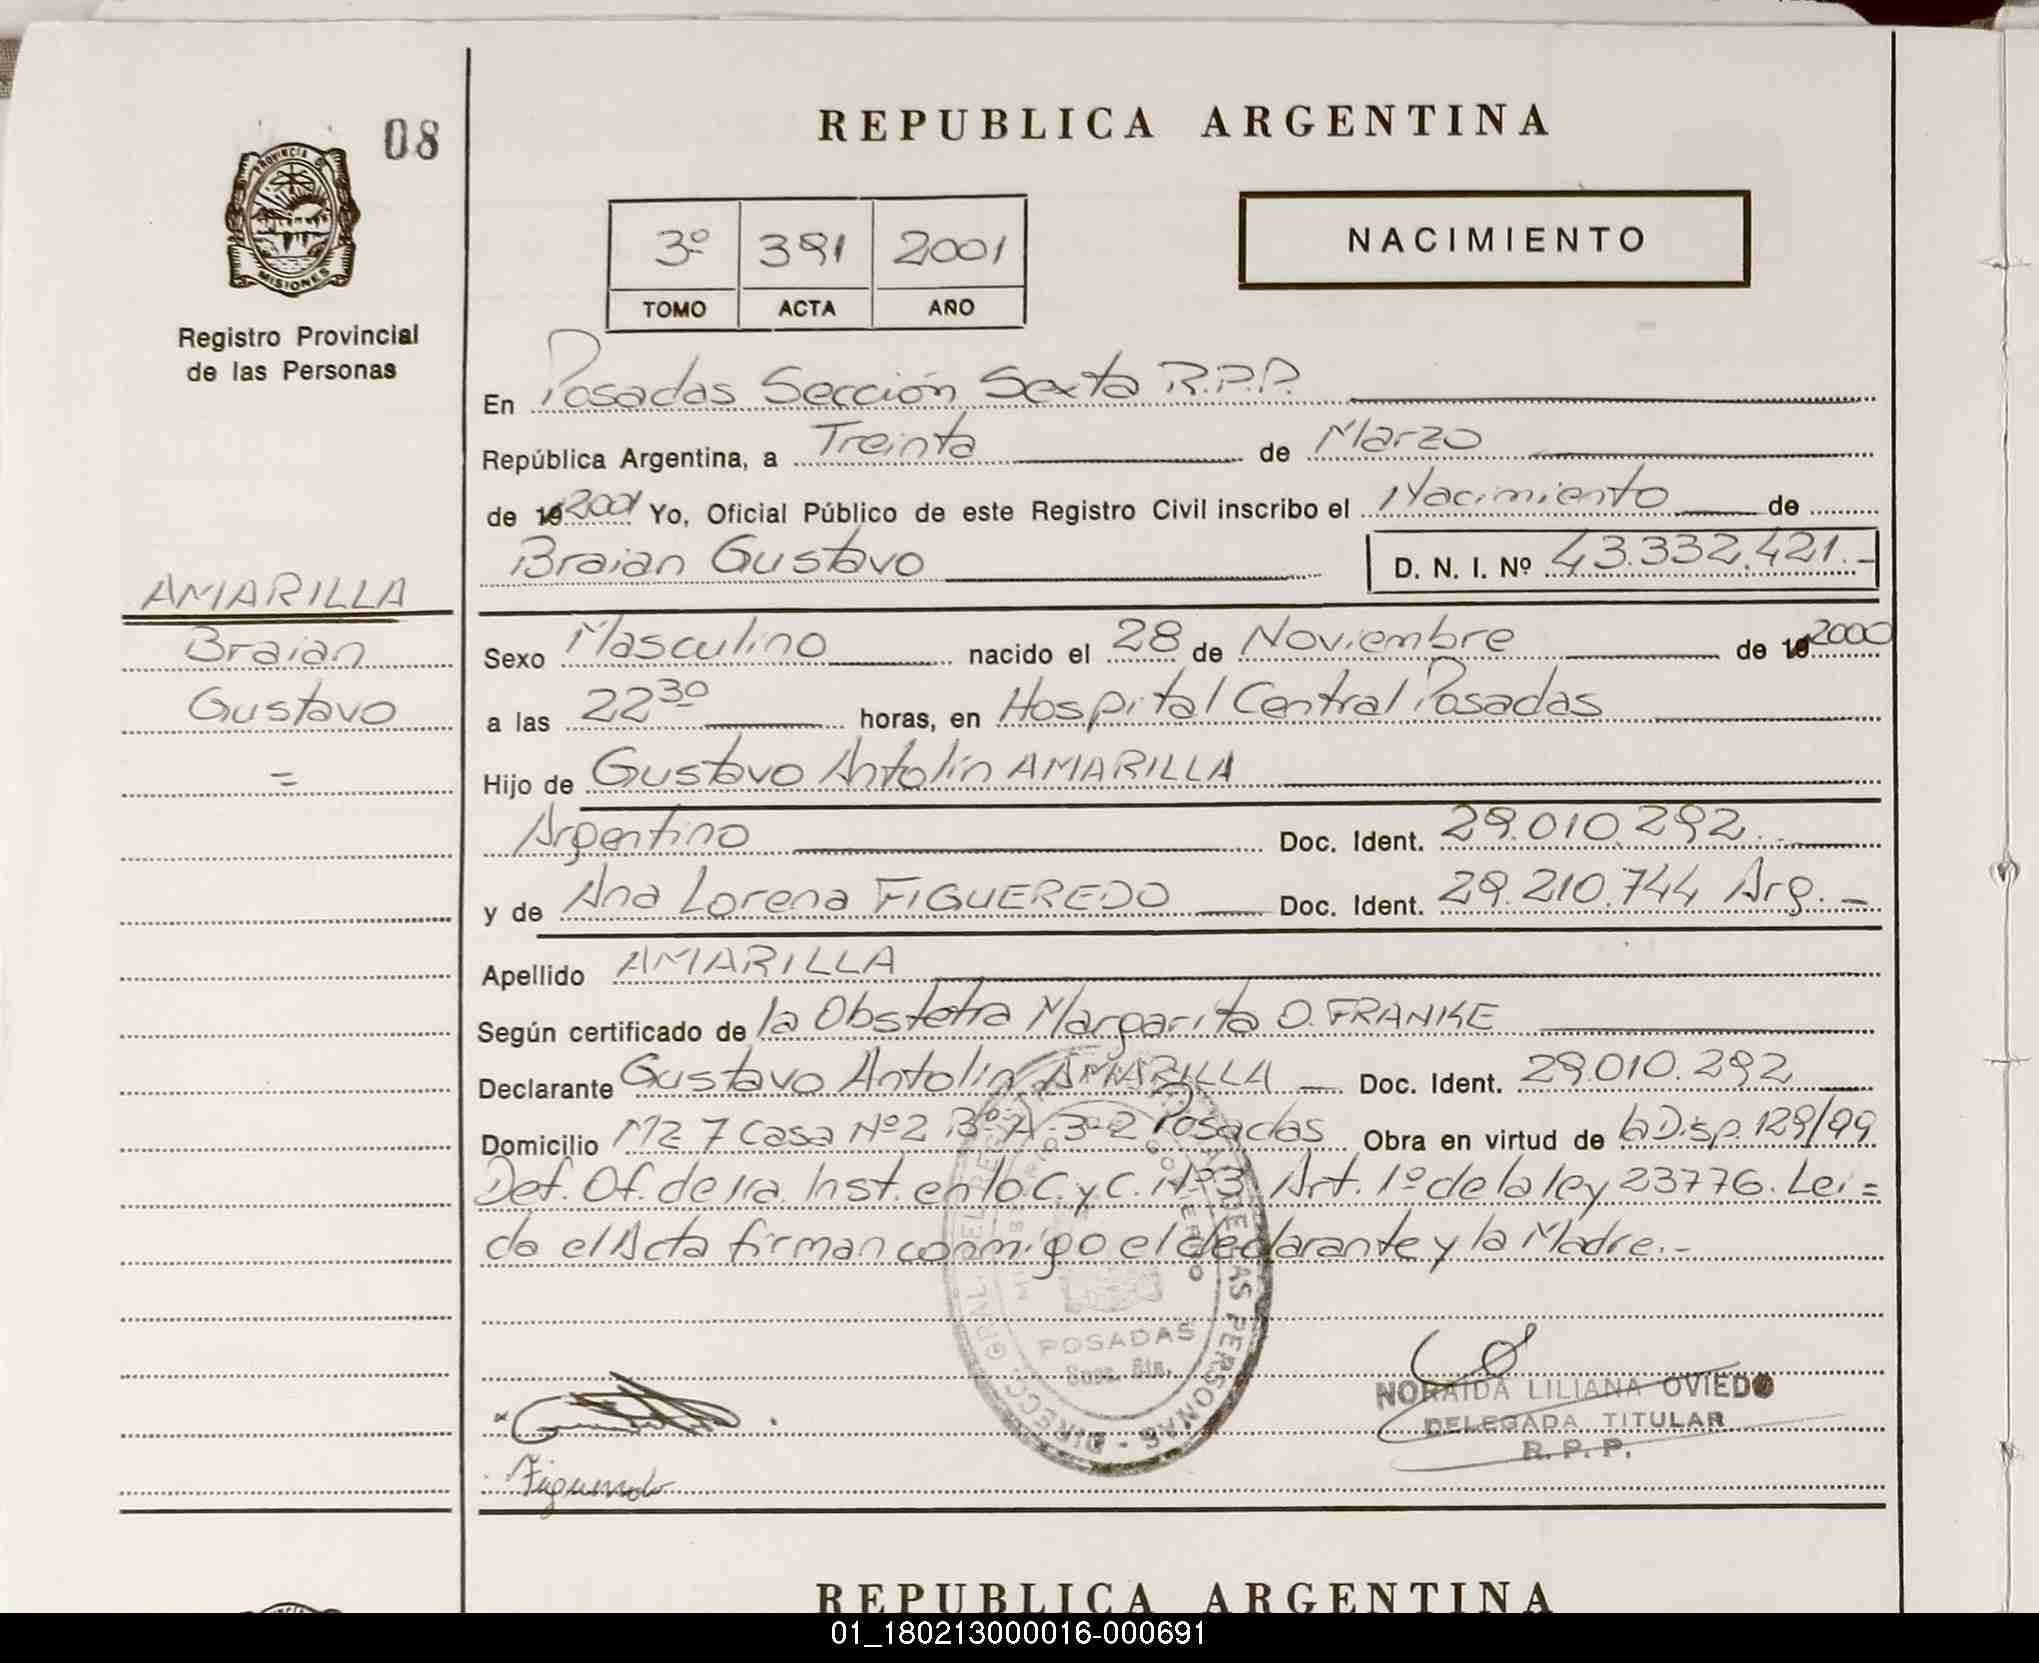 08
PROVINCIA DE
MISIONES
Registro Provincial
de las Personas
AMARILLA
Braian
Gustavo
=
REPUBLICA ARGENTINA
3º 391 2001
TOMO ACTA AÑO
NACIMIENTO
En Posadas Sección Sexta R.P.P.
República Argentina, a Treinta de Marzo
de 19 2001 Yo, Oficial Público de este Registro Civil inscribo el Nacimiento de
Braian Gustavo D. N. I. Nº 43.332.421.-
Sexo Masculino nacido el 28 de Noviembre de 19 2000
a las 22 30 horas, en Hospital Central Posadas
Hijo de Gustavo Antolín AMARILLA
Argentino Doc. Ident. 29.010.292.
y de Ana Lorena FIGUEREDO Doc. Ident. 29.210.744 Arg. -
Apellido AMARILLA
Según certificado de la Obstetra Margarita O. FRANKE
Declarante Gustavo Antolín AMARILLA Doc. Ident. 29.010.292
Domicilio Mz 7 Casa Nº2 Bº A-3-2 Posadas Obra en virtud de la Disp. 129/99
Def. Of. de 1ra. Inst. en lo C. y C. Nº3 Art. 1º de la ley 23776. Lei=
da el Acta firman conmigo el declarante y la Madre.-
DIRECC. GRAL. DEL DE LAS PERSONAS
GOBIERNO
POSADAS
NORAIDA LILIANA OVIEDO
DELEGADA TITULAR
R. P. P.
Figueredo
REPUBLICA ARGENTINA
01_180213000016-000691